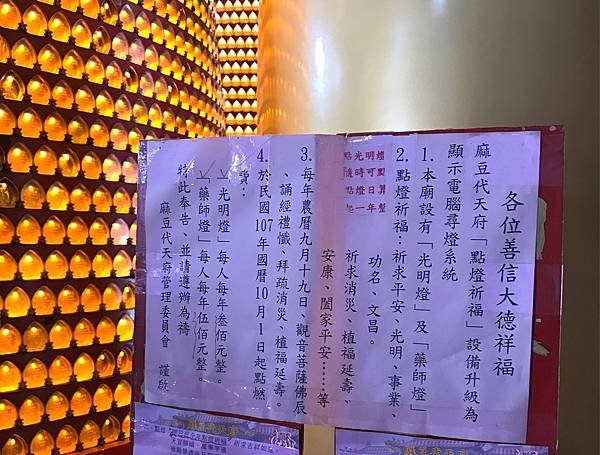 各位善信大德祥福
麻豆代天府「點燈祈福」設備升級為
顯示電腦尋燈系統
1.本廟設有「光明燈」及「藥師燈」
2.點燈祈福：祈求平安、光明、事業、
功名、文昌。
祈求消災、植福延壽、
安康、闔家平安……等
點光明燈
隨時可點
點日算
起一年整
3.每年農曆九月十九日、觀音菩薩佛辰
、誦經禮懺、拜疏消災、植福延壽。
4.於民國107年國曆10月1日起點燃
費：
「光明燈」每人每年叁佰元整。
「藥師燈」每人每年伍佰元整。
特此奉告、並請遵辦為禱
麻豆代天府管理委員會 謹啟